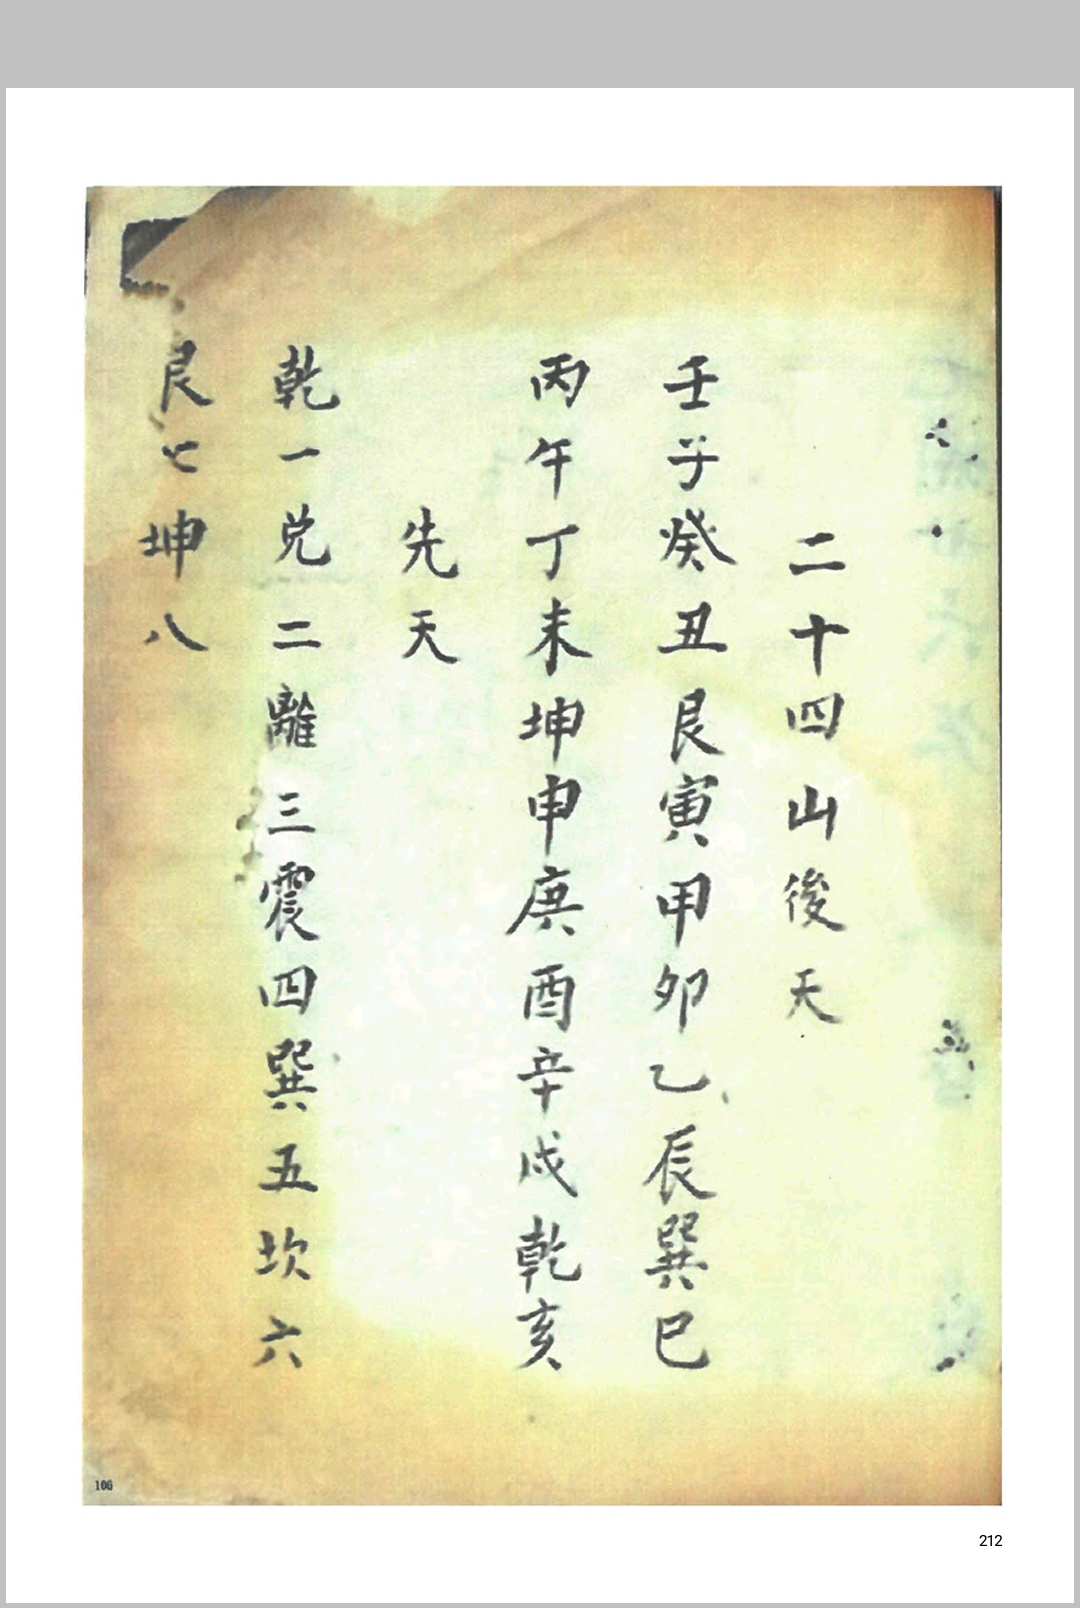 二十四山後天
壬子癸丑艮寅甲卯乙辰巽巳
丙午丁未坤申庚酉辛戌乾亥
先天
乾一兌二離三震四巽五坎六
艮七坤八
106
212